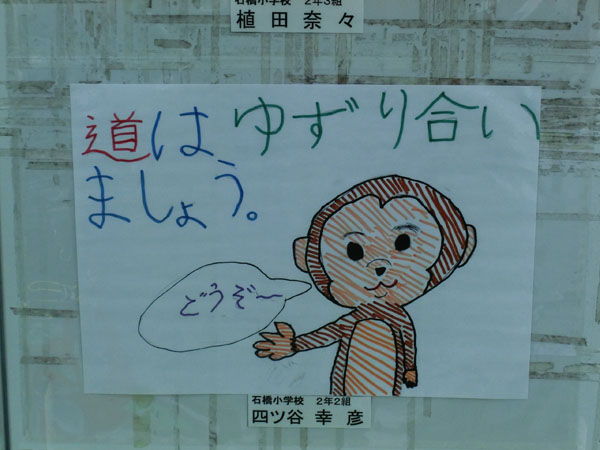 石橋小学校 2年3組
植田奈々
道は、ゆずり合い
ましょう。
どうぞ〜
石橋小学校 2年2組
四ツ谷 幸彦